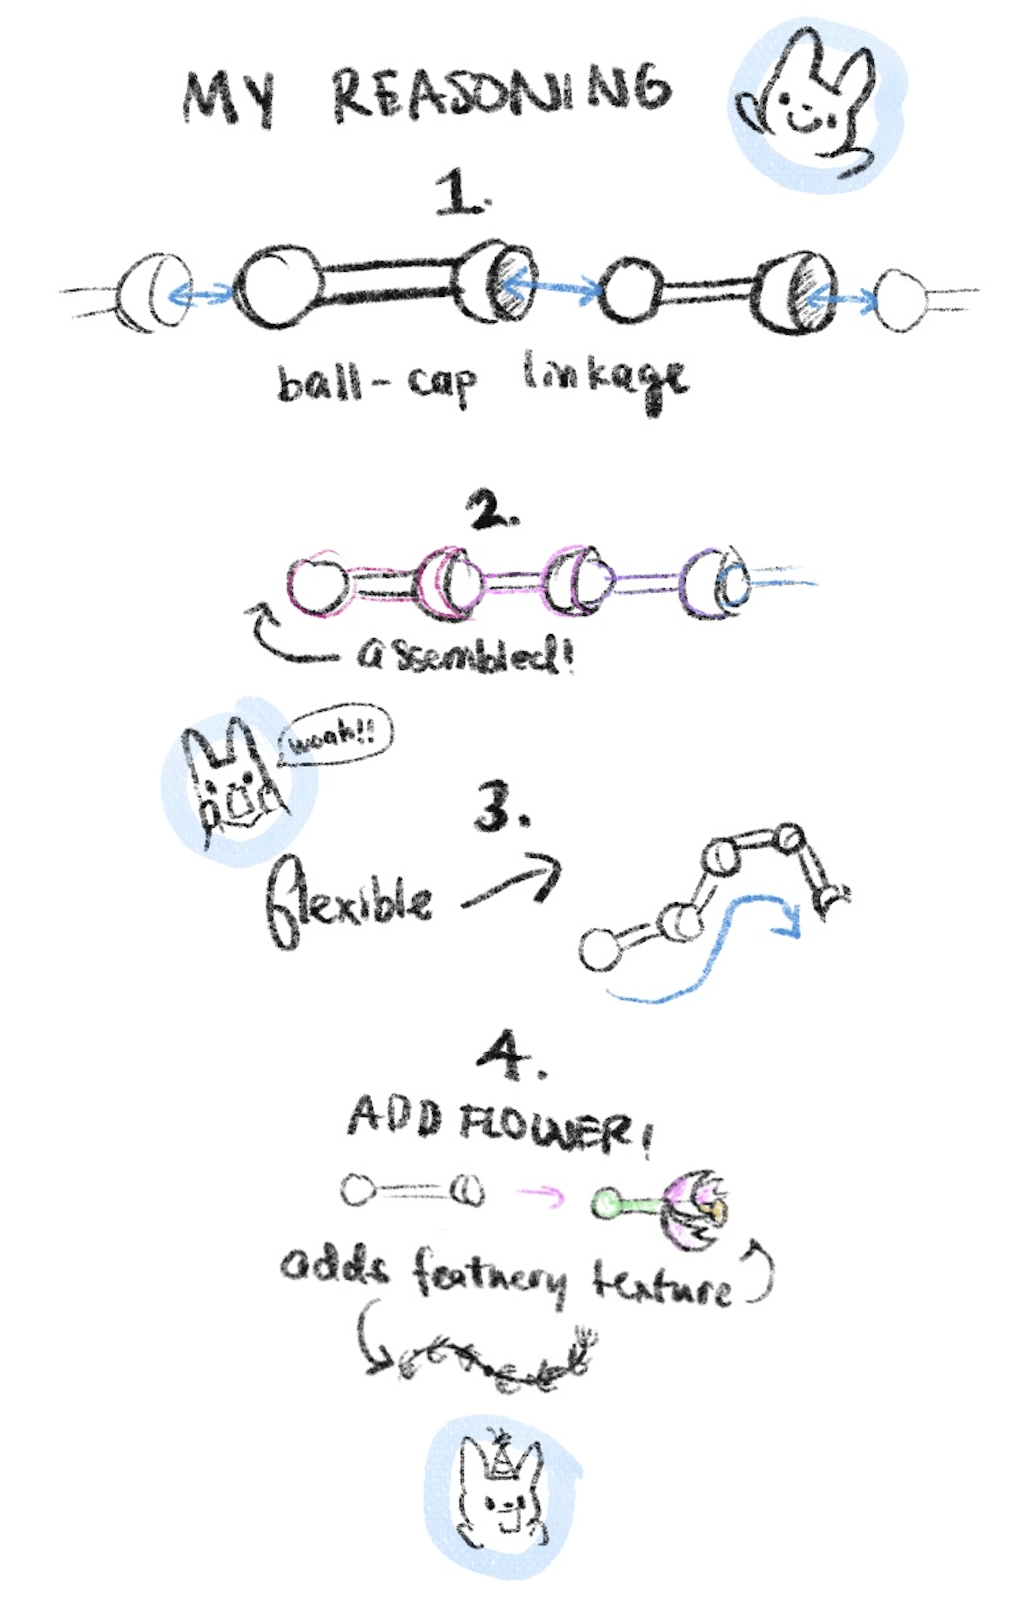 MY REASONING
1.
ball-cap linkage
2.
assembled!
woah!!
3.
flexible
4.
ADD FLOWER!
adds feathery texture